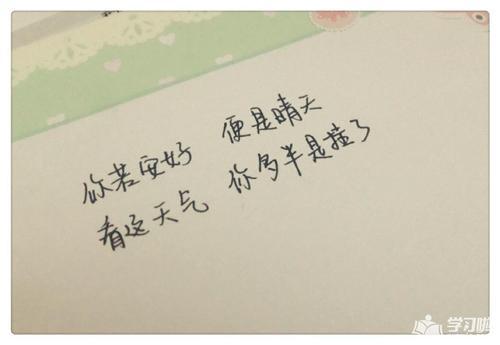 你若安好 便是晴天
看这天气 你多半是撞了
学习啦